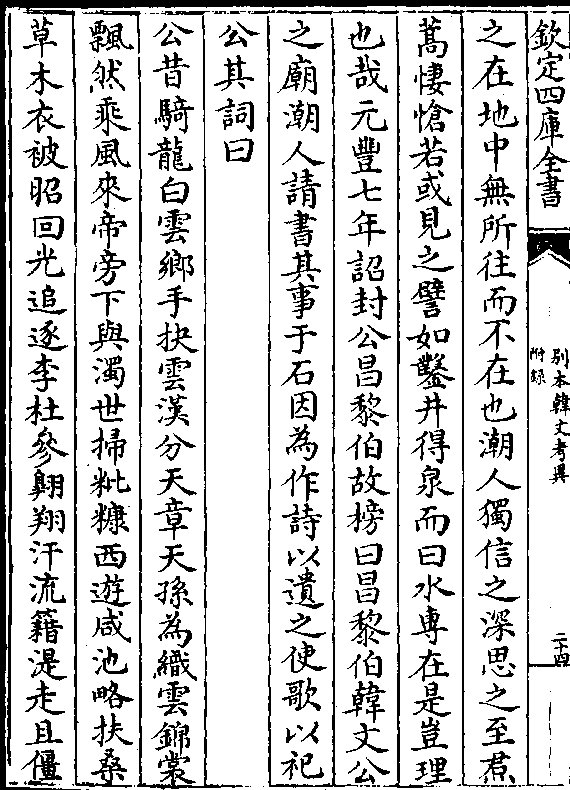 欽定四庫全書
別本韓文考異
附錄
二十四
之在地中無所往而不在也潮人獨信之深思之至焄
蒿悽愴若或見之譬如鑿井得泉而曰水專在是豈理
也哉元豐七年詔封公昌黎伯故榜曰昌黎伯韓文公
之廟潮人請書其事于石因為作詩以遺之使歌以祀
公其詞曰
公昔騎龍白雲鄉手抉雲漢分天章天孫為織雲錦裳
飄然乘風來帝旁下與濁世掃粃糠西遊咸池略扶桑
草木衣被昭回光追逐李杜參翺翔汗流籍湜走且僵